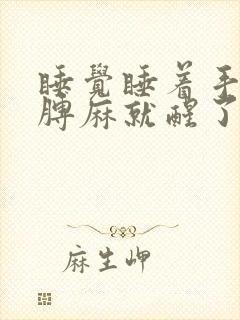 睡覺睡着手
脾麻就醒了
麻生岬